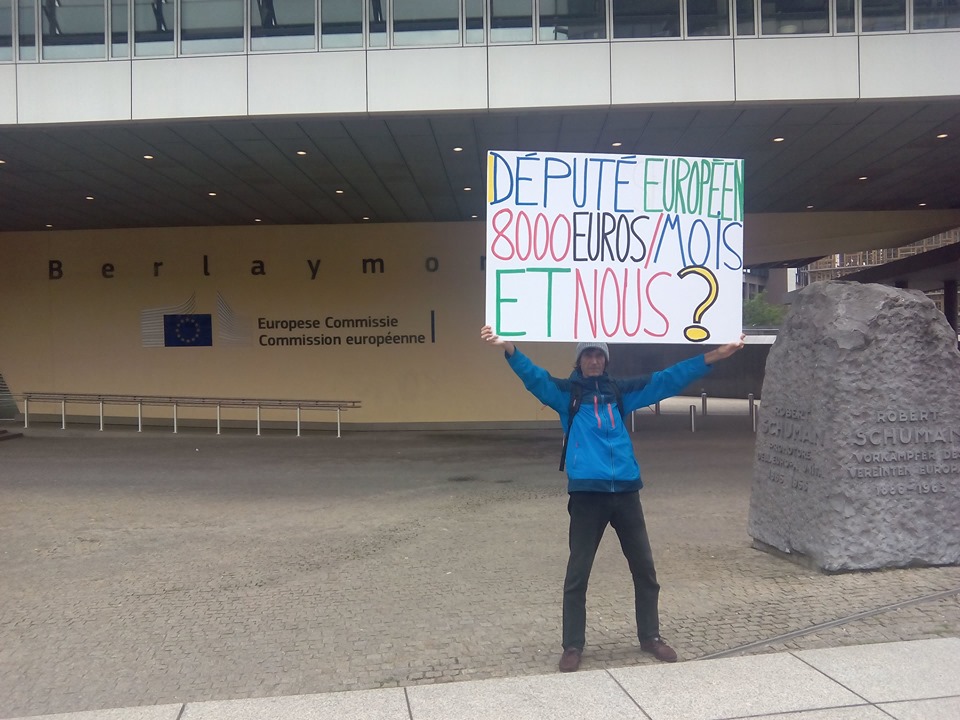 DÉPUTÉ EUROPÉEN
8000 EUROS/MOIS
ET NOUS?
Berlaymo
Europese Commissie
Commission européenne
ROBERT
SCHUMAN
ROBERT
SCHUMAN
VORKÄMPFER DES
VEREINTEN EUROPA
1886-1963